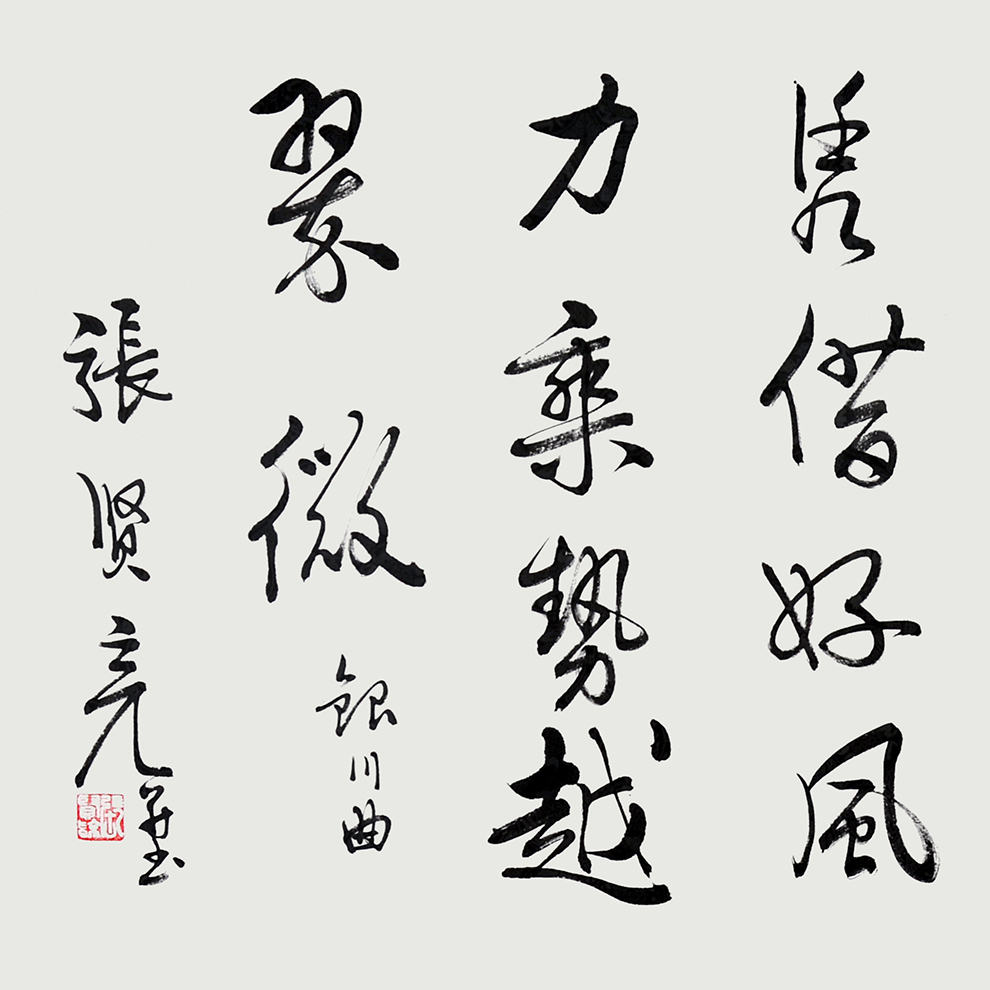 凭借好風
力乘勢越
翠微 銀川曲
張贤亮